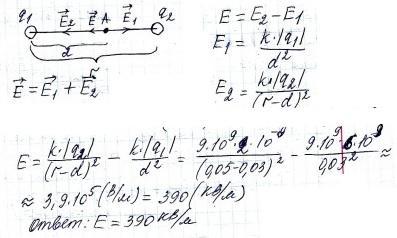 q₁ E⃗₂ E⃗ A E⃗₁ q₂
d
r
E⃗ = E⃗₁ + E⃗₂
E = E₂ - E₁
E₁ = k·|q₁| / d²
E₂ = k·|q₂| / (r-d)²
E = k·|q₂| / (r-d)² - k·|q₁| / d² = 9·10⁹·2·10⁻⁸ / (0,05-0,03)² - 9·10⁹·6·10⁻⁹ / 0,03² ≈
≈ 3,9·10⁵ (В/м) = 390 (кВ/м)
Ответ: E = 390 кВ/м